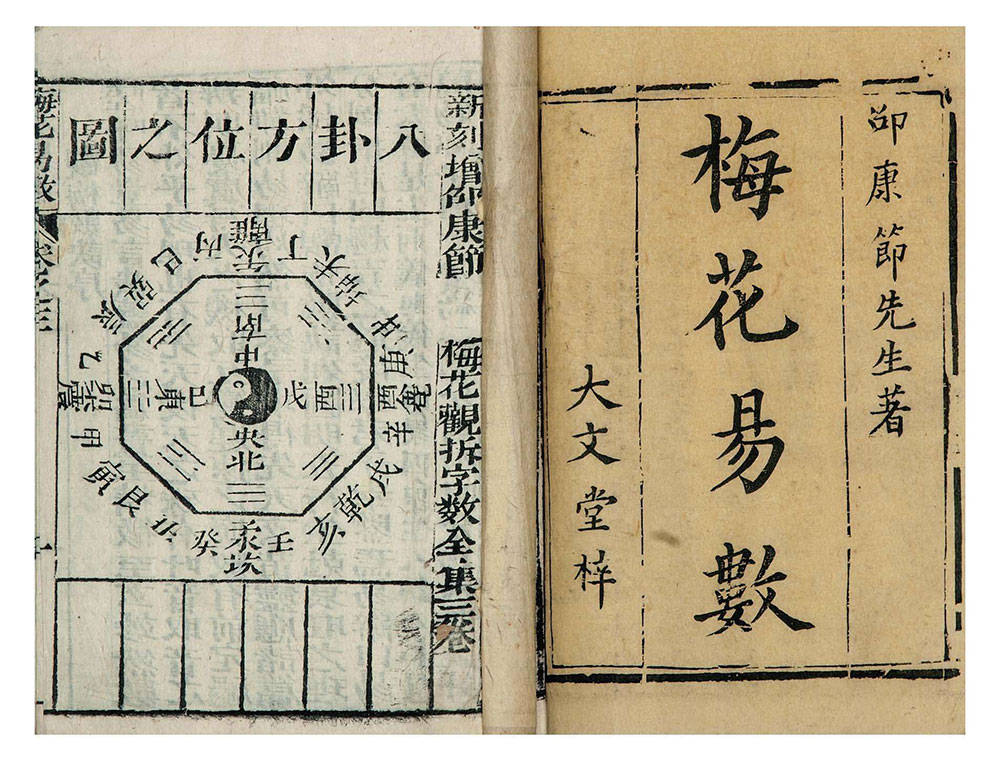 邵康節先生著
梅花易數
大文堂梓
新刻增邵康節
梅花觀拆字數全集三卷
八卦方位之圖
丙
午離
丁
未
坤
申
庚
酉兌
辛
戌
乾
亥
壬
子坎
癸
丑
艮
寅
甲
卯震
乙
辰
巽
巳
南
中
東
巳
戊
西
央
北
梅花易數
卷之三